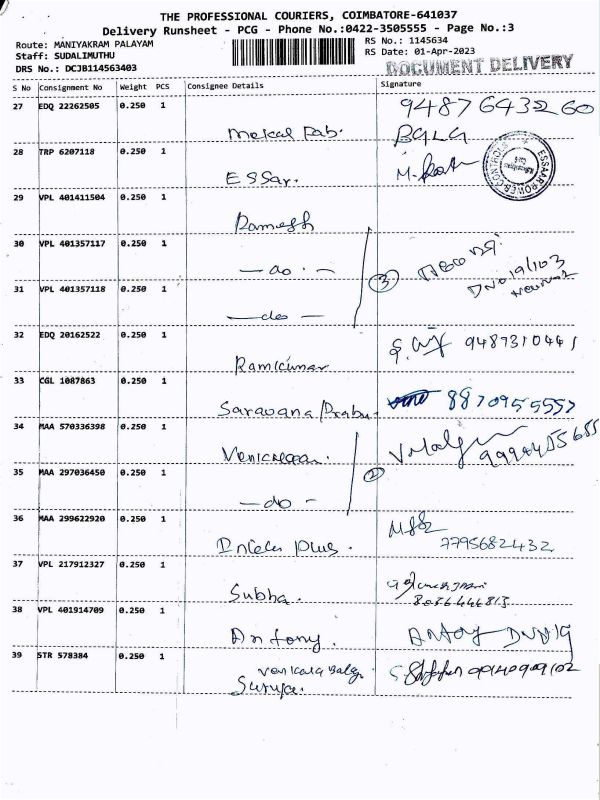 THE PROFESSIONAL COURIERS, COIMBATORE-641037
Delivery Runsheet - PCG - Phone No.:0422-3505555 - Page No.:3
Route: MANIYAKRAM PALAYAM
RS No.: 1145634
Staff: SUDALIMUTHU
RS Date: 01-Apr-2023
DRS No.: DCJB114563403
DOCUMENT DELIVERY
S No Consignment No Weight PCS Consignee Details Signature
27 EDQ 22262505 0.250 1
28 TRP 6207118 0.250 1
ESSar.
ESSAR POWER CONTROLS
29 VPL 401411504 0.250 1
Ramesh
30 VPL 401357117 0.250 1
-do-
3
31 VPL 401357118 0.250 1
-do-
32 EDQ 20162522 0.250 1
Ramkumar
9487310441
33 CGL 1087863 0.250 1
Saravana Prabu
34 MAA 570336398 0.250 1
35 MAA 297036450 0.250 1
2
-do-
36 MAA 299622920 0.250 1
Plus.
7795682432
37 VPL 217912327 0.250 1
Subha.
38 VPL 401914709 0.250 1
Antony.
39 STR 578384 0.250 1
Surya.